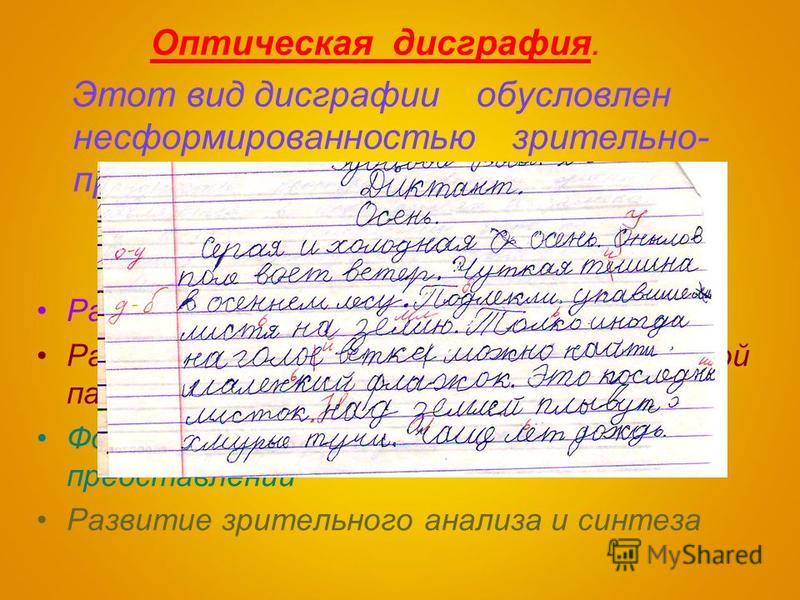 Оптическая дисграфия.
Этот вид дисграфии обусловлен
несформированностью зрительно-
пр
Диктант.
Осень.
о-у
Серая и холодная осень. В
поле воет ветер. Чуткая тешина
д-б
в осеннем лесу. Подлекли упавише
листя на землю. Толко иногда
на голое ветке можно найти
маленкий флажок. Это последны
листок. Над землей плывут
хмурые тучи. Чаще лет дождь.
• Ра
• Ра
ой
па
• Фо
представлений
• Развитие зрительного анализа и синтеза
MyShared